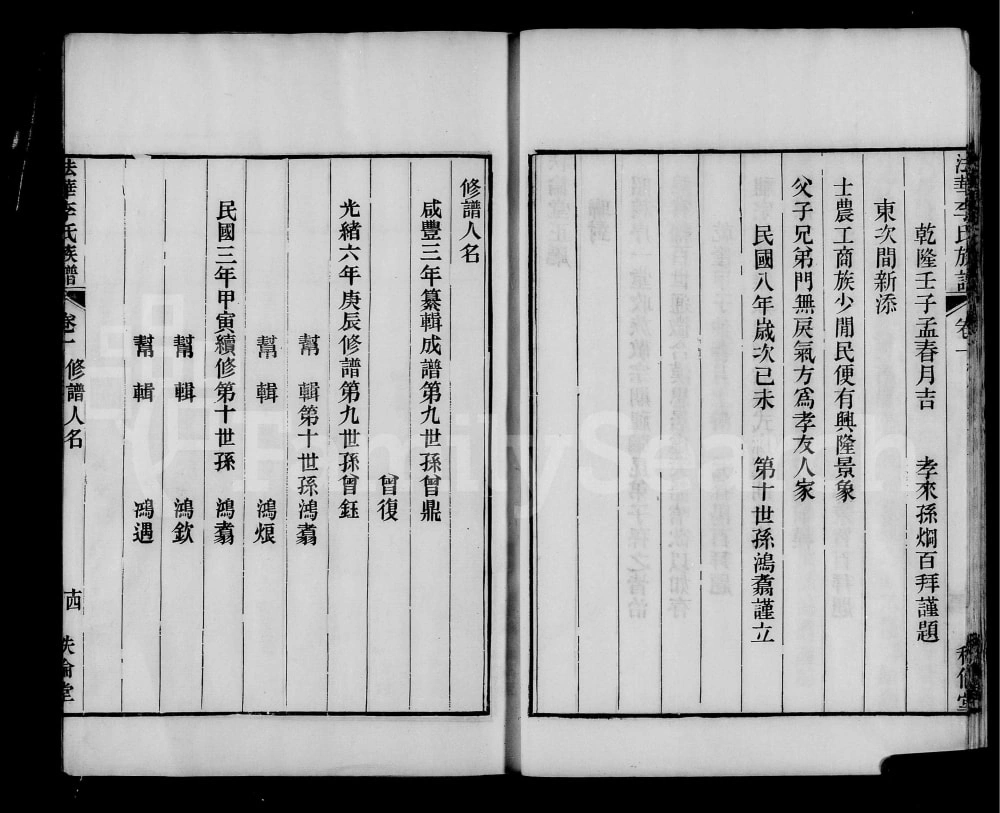 法華李氏族譜 卷一
乾隆壬子孟春月吉 孝來孫炯百拜謹題
東次間新添
士農工商族少閒民便有興隆景象
父子兄弟門無戾氣方爲孝友人家
民國八年歲次己未 第十世孫鴻翥謹立
修譜人名
咸豐三年纂輯成譜第九世孫曾鼎
曾復
光緒六年庚辰修譜第九世孫曾鈺
幫輯第十世孫鴻翥
幫輯 鴻烺
民國三年甲寅續修第十世孫 鴻翥
幫輯 鴻欽
幫輯 鴻遇
法華李氏族譜 卷一 修譜人名 十四 倫堂
FamilySearch